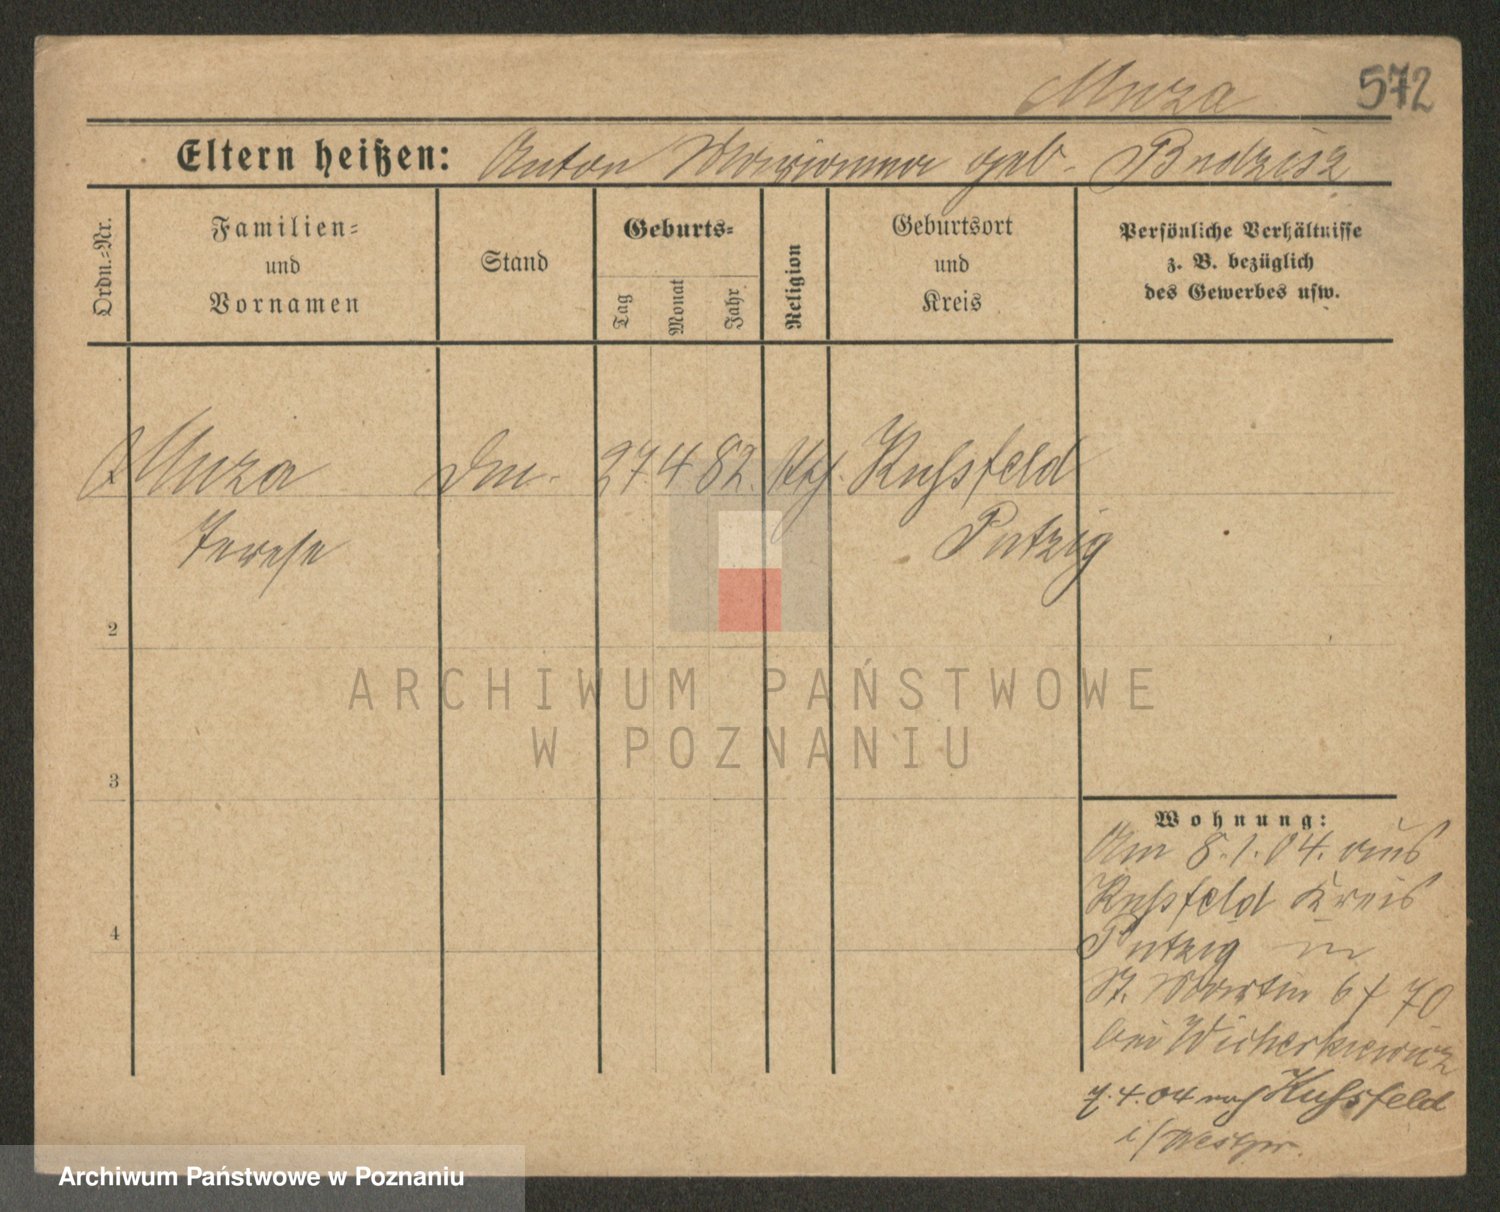 Muza 572
Eltern heißen: Anton Marianna geb. Budzisz
Ordn.-Nr.
Familien-
und
Vornamen
Stand
Geburts-
Tag
Monat
Jahr
Religion
Geburtsort
und
Kreis
Persönliche Verhältnisse
z. B. bezüglich
des Gewerbes usw.
Muza 27. 4 82. Kth. Kußfeld
Terese Putzig
2
3
4
Wohnung:
Am 8.1.04. aus
Kußfeld Kreis
Putzig in
St. Martin 67 70
bei Wicherkiewicz
7.4.04 nach Kußfeld
i/Westpr.
ARCHIWUM PAŃSTWOWE
W POZNANIU
Archiwum Państwowe w Poznaniu